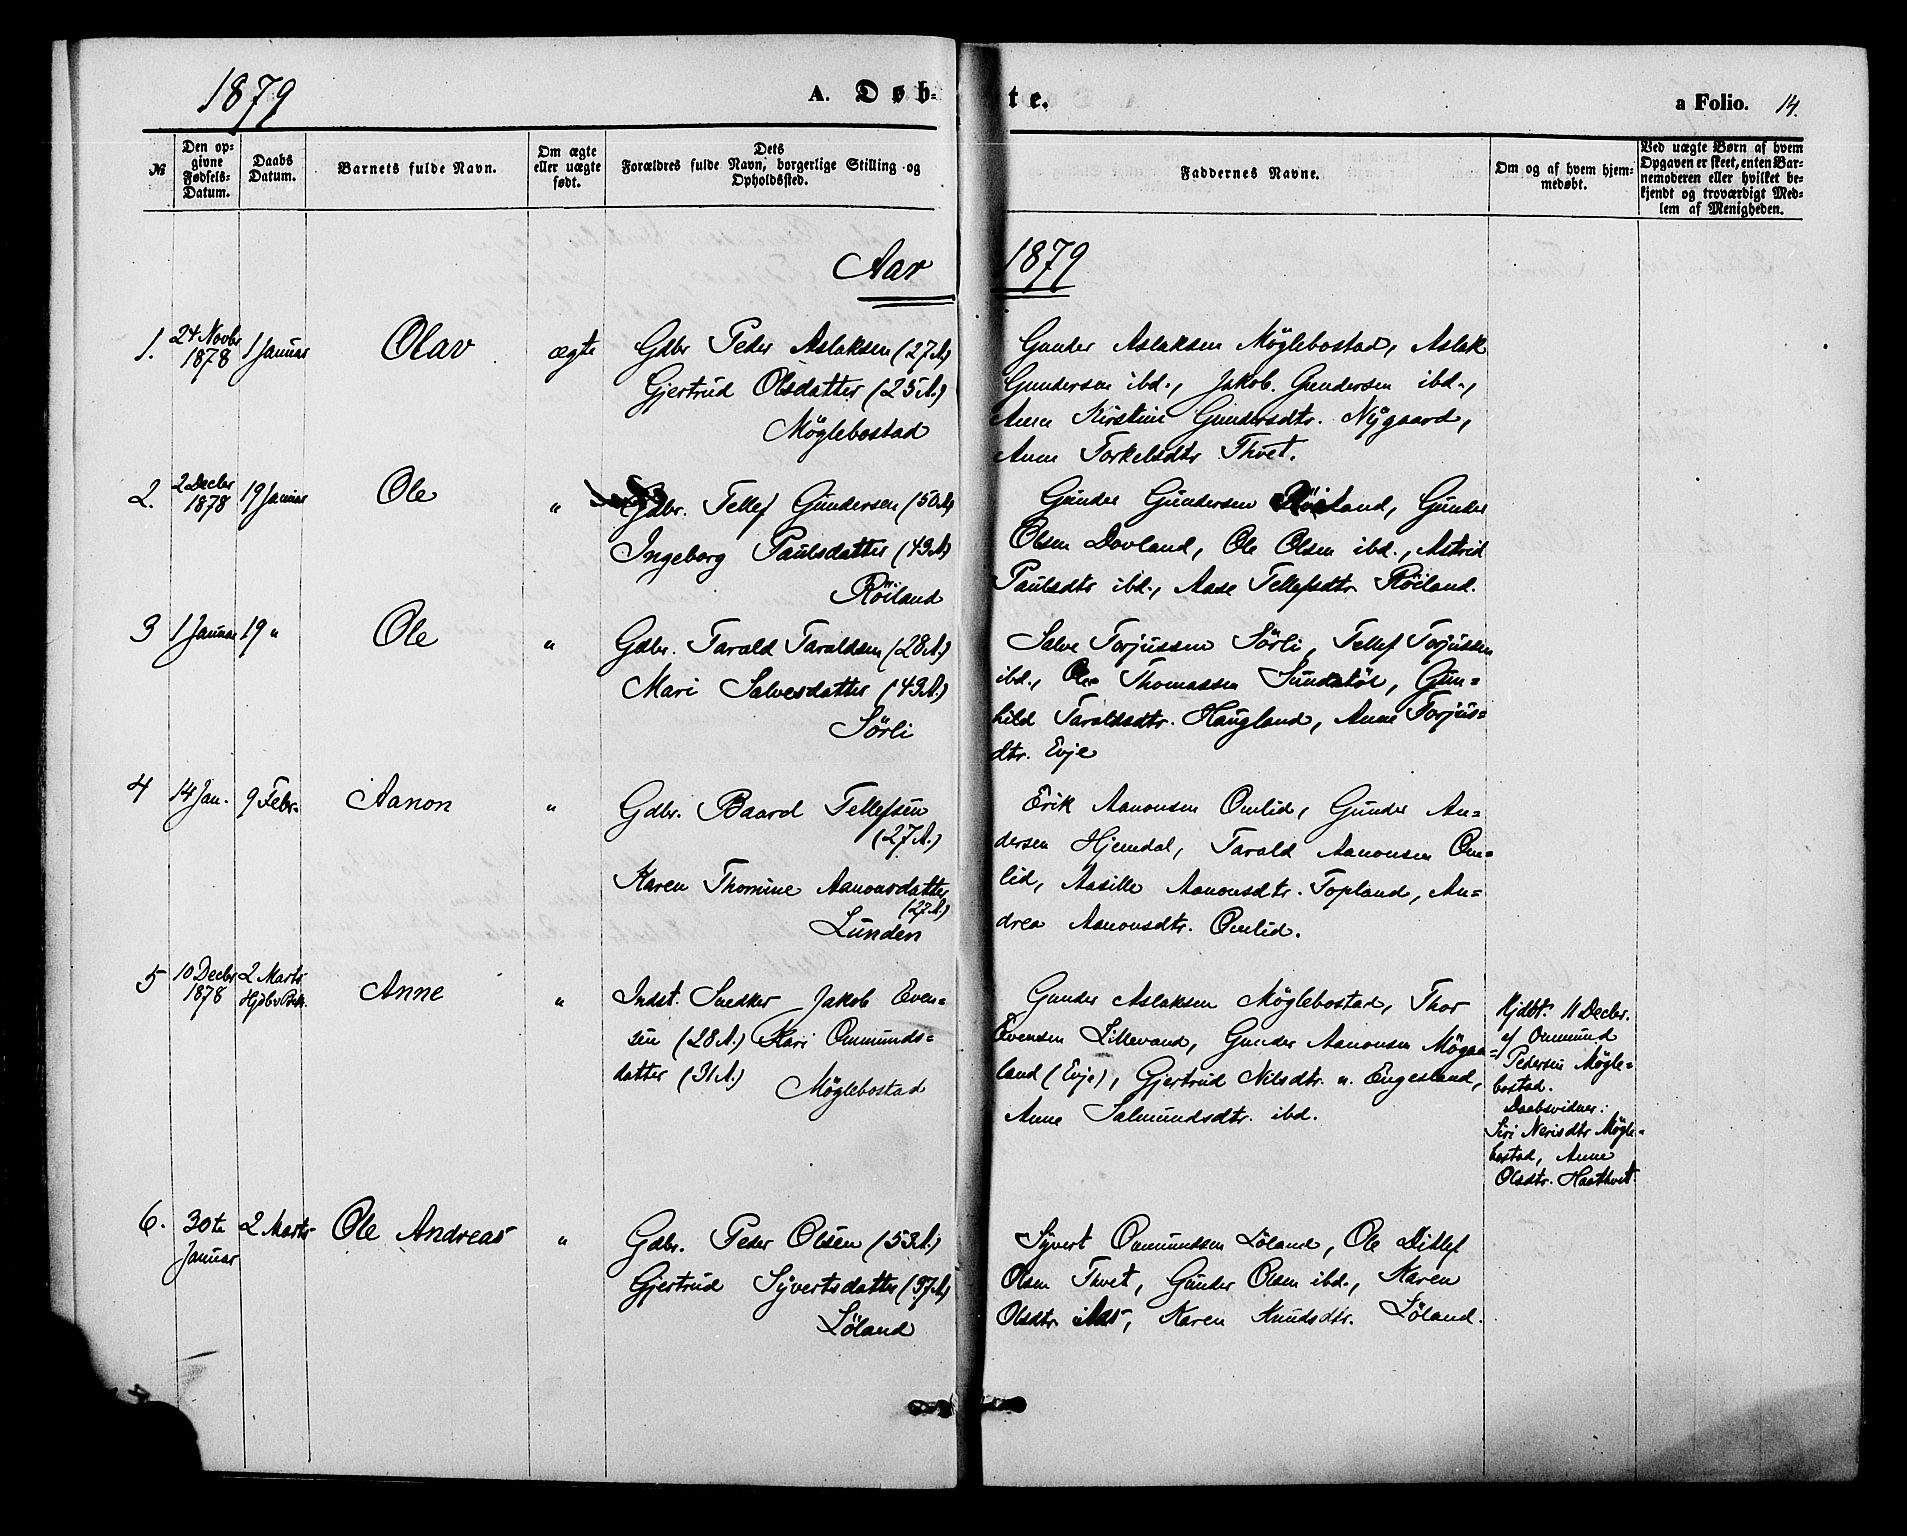 1879
A. Døb-te.
a Folio. 14.
№
Den op-
givne
Fødsels-
Datum.
Daabs
Datum.
Barnets fulde Navn.
Om ægte
eller uægte
født.
Dets
Forældres fulde Navn, borgerlige Stilling og
Opholdssted.
Faddernes Navne.
Om og af hvem hjem-
medøbt.
Ved uægte Børn af hvem
Opgaven er skeet, enten Bar-
nemoderen eller hvilket be-
kjendt og troværdigt Med-
lem af Menigheden.
Aar 1879
1.
24 Novbr
1878
1 Januar
Olav
ægte
Gdbr Peder Aslaksen (27A)
Gjertrud Olsdatter (25A.)
Møglebostad
Gunder Aslaksen Møglebostad, Aslak
Gundersen ibd., Jakob Gundersen ibd.,
Anne Kirstine Gundersdtr. Nygaard,
Anne Torkelsdtr Thvet.
2.
2 Decbr
1878
19 Januar
Ole
"
Gdbr. Tellef Gundersen (50A)
Ingeborg Paulsdatter (43A)
Röiland
Gunder Gundersen Röiland, Gunder
Olsen Dovland, Ole Olsen ibd., Astrid
Paulsdtr ibd., Aase Tellefsdtr Röiland.
3
1 Januar
19 "
Ole
"
Gdbr. Tarald Taraldsen (28A.)
Mari Salvesdatter (43A.)
Sörli
Salve Torjussen Sörli, Tellef Torjussen
ibd., Ole Thomassen Sundstöl, Gun=
hild Taraldsdtr. Haugland, Anne Torjus=
dtr. Evje
4
14 Jan.
9 Febr.
Aanon
"
Gdbr. Baard Tellefsen
(27A.)
Karen Thomine Aanonsdatter
(27A.)
Lunden
Erik Aanonsen Omlid, Gunder An=
dersen Hjemdal, Tarald Aanonsen Om=
lid, Aasille Aanonsdtr. Topland, An=
drea Aanonsdtr. Omlid.
5
10 Decbr
1878
2 Marts
Anne
"
Indst. Snedker Jakob Even=
sen (28A.) Kari Ommunds=
datter (31A.)
Møglebostad
Gunder Aslaksen Møglebostad, Thor
Evensen Lillevand, Gunder Aanonsen Mögaa=
land (Evje), Gjertrud Nilsdtr. n. Engesland,
Anne Salmundsdtr. ibd.
Hjdbt. 11 Decbr.
af Ommund
Pedersen Møgle=
bostad.
Daabsvidner:
Siri Nerisdtr Møgle=
bostad, Anne
Olsdtr. Haathvet
6.
30te
Januar
2 Marts
Ole Andreas
"
Gdbr. Peder Olsen (53A.)
Gjertrud Syvertsdatter (37A)
Löland
Syvert Ommundsen Löland, Ole Ditlef
Olsen Thvet, Gunder Olsen ibd., Karen
Olsdtr. Aas, Karen Knudsdtr. Löland.